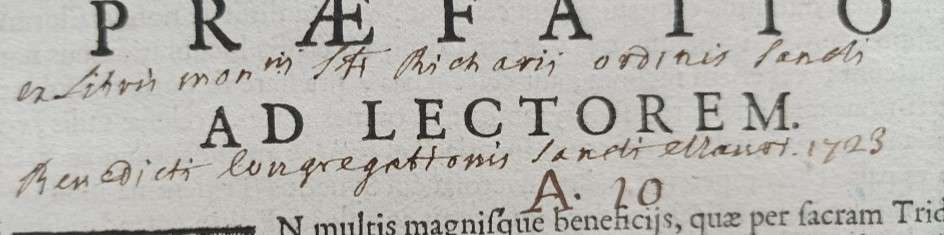 PRÆFATIO
ex Libris mon.rii Sti Richarii ordinis Sancti
AD LECTOREM.
Benedicti Congregationis Sancti Mauri. 1723
A. 10
N multis magniſque beneficijs, quæ per ſacram Trid